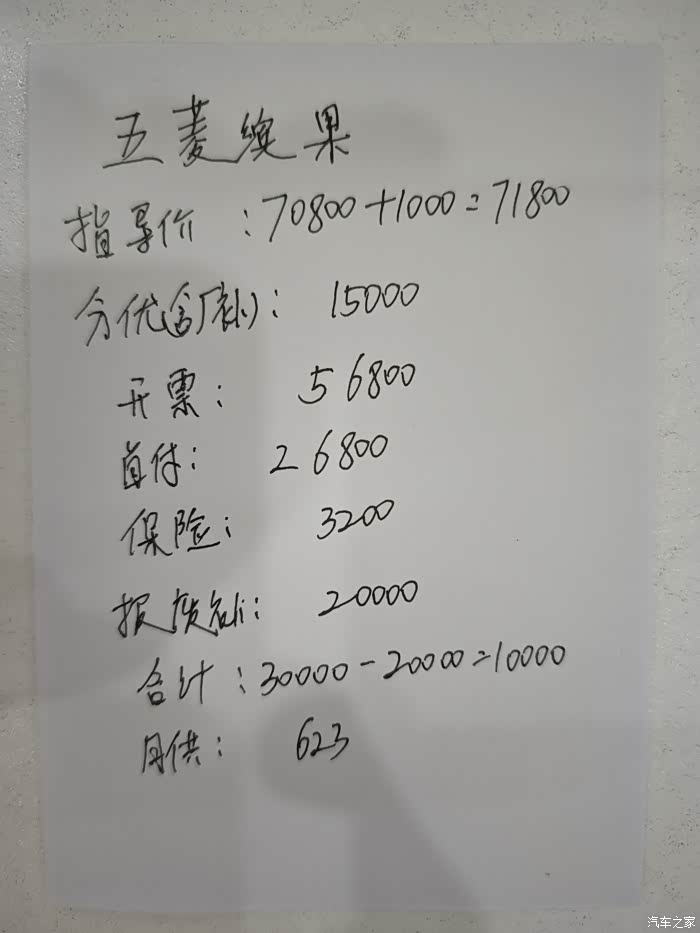 五菱缤果
指导价：70800+1000=71800
分优(含厂补)：15000
开票：56800
首付：26800
保险：3200
报废补：20000
合计：30000-20000=10000
月供：623
汽车之家